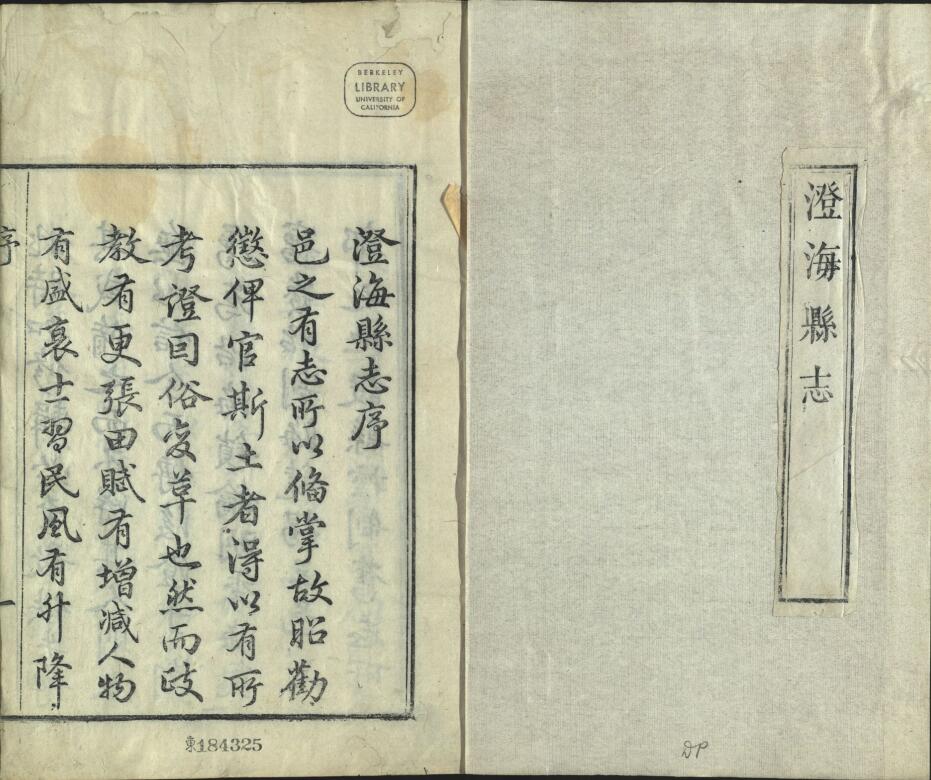 澄海縣志
BERKELEY
LIBRARY
UNIVERSITY OF
CALIFORNIA
澄海縣志序
邑之有志所以俻掌故昭勸
懲俾官斯土者得以有所
考證囙俗变革也然而政
教有更張田賦有增減人物
有盛衰士習民風有升降
序
一
東184325
DP